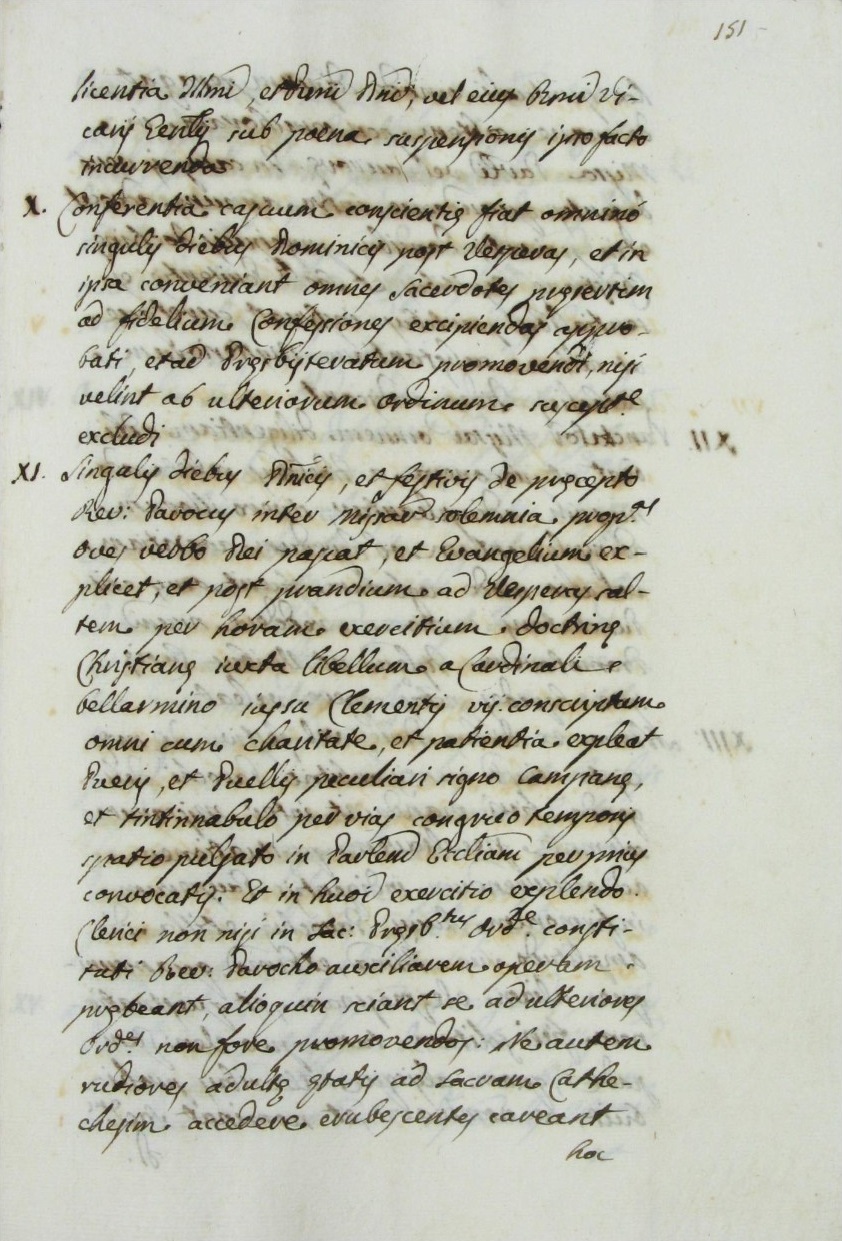 151
licentia Illmi, et Rmi Dni, vel eius Rmi Vi-
carij Genlis sub poena suspensionis ipso facto
incurrenda
X. Conferentia casuum conscientię fiat omninò
singulis diebus Dominicis post Vesperas, et in
ipsa conveniant omnes Sacerdotes pręsertim
ad fidelium Confessiones excipiendas appro-
bati, et ad Pręsbyteratum promovendi, nisi
velint ab ulteriorum ordinum suscept.e
excludi
XI. Singulis diebus Dnicis, et festivis de pręcepto
Rev: Parocus inter Missar solemnia propr.s
oves verbo Dei pascat, et Evangelium ex-
plicet, et post prandium ad Vesperas sal-
tem per horam exercitium doctrinę
Christianę iuxta libellum a Cardinali
bellarmino iussu Clementis vij. conscriptum
omni cum charitate, et patientia expleat
Pueris, et Puellis peculiari signo Campanę,
et tintinnabulo per vias congruo temporis
spatio pulsato in Parlem Eccliam per prius
convocatis: Et in huoi exercitio explendo
Clerici non nisi in Sac: Pręsb.tus Ord.e consti-
tuti Rev: Parocho auxiliarem operam
prębeant, alioquin sciant se ad ulteriores
Ord.es non fore promovendos: Ne autem
rudiores adultę ętatis ad Sacram Cathe-
chesim accedere erubescentes careant
hoc